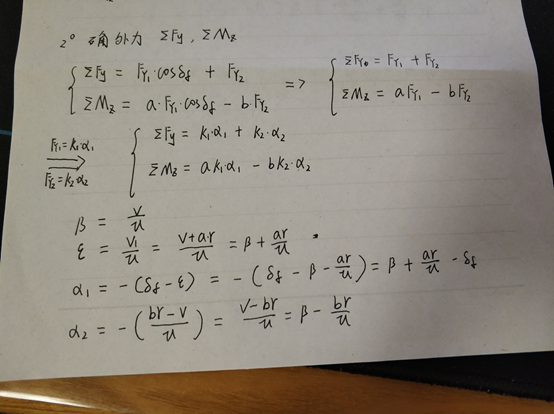 2° 确外力 ΣFy, ΣMz
{ ΣFy = FY1·cosδf + FY2 => { ΣFY0 = FY1 + FY2
ΣMz = a·FY1·cosδf - b·FY2 ΣMz = aFY1 - bFY2
FY1=k1·α1 { ΣFy = k1·α1 + k2·α2
FY2=k2·α2 ΣMz = ak1·α1 - bk2·α2
β = v/u
ξ = v1/u = v+a·r/u = β + ar/u
α1 = -(δf - ξ) = -(δf - β - ar/u) = β + ar/u - δf
α2 = -(br-v/u) = v-br/u = β - br/u